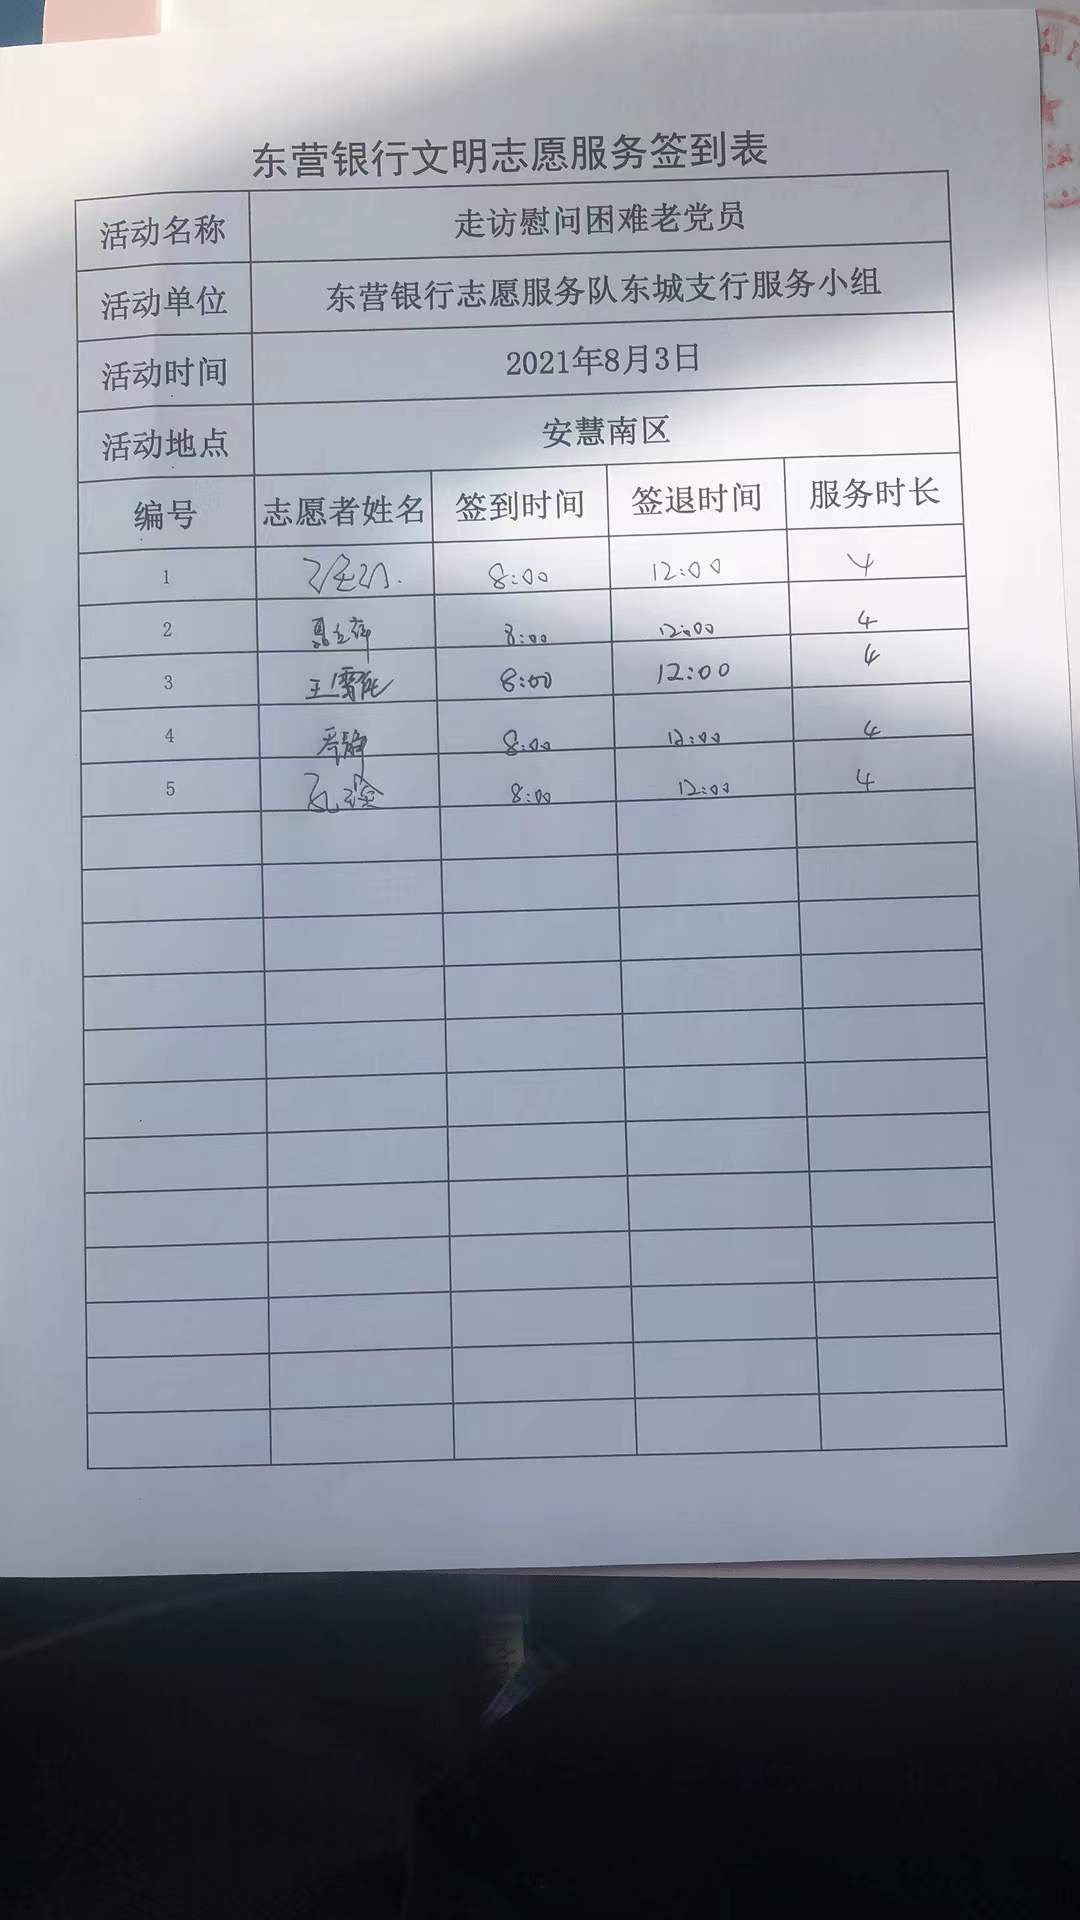 东营银行文明志愿服务签到表
活动名称 走访慰问困难老党员
活动单位 东营银行志愿服务队东城支行服务小组
活动时间 2021年8月3日
活动地点 安慧南区
编号 志愿者姓名 签到时间 签退时间 服务时长
1 8:00 12:00 4
2 8:00 12:00 4
3 王雪 8:00 12:00 4
4 静 8:00 12:00 4
5 8:00 12:00 4